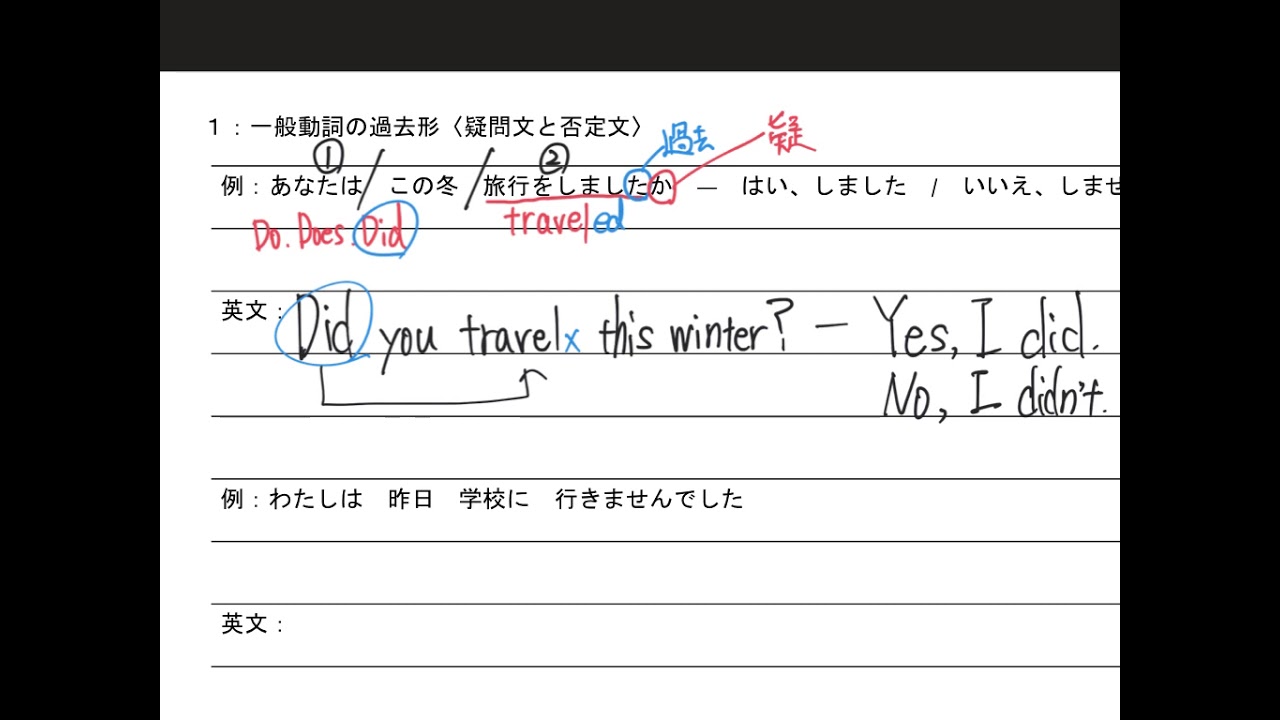 1：一般動詞の過去形〈疑問文と否定文〉
過去 疑
① ②
例：あなたは / この冬 / 旅行をしましたか ― はい、しました / いいえ、しませ
Do. Does. Did traveled
英文： Did you travel× this winter? – Yes, I did.
No, I didn't.
例：わたしは 昨日 学校に 行きませんでした
英文：